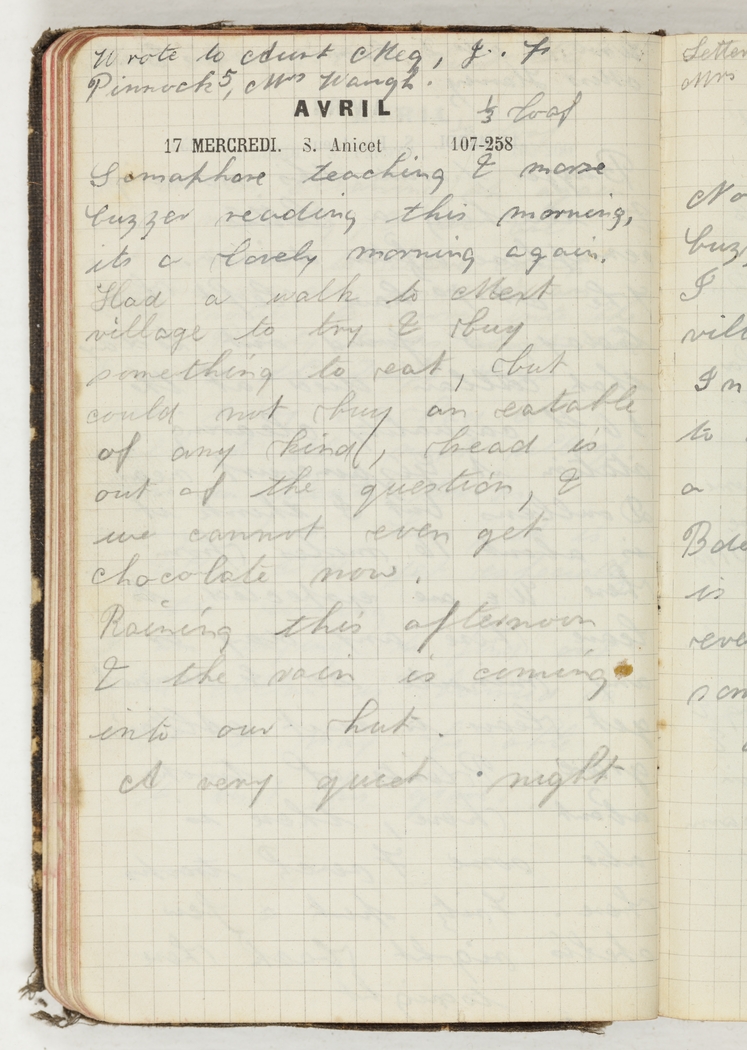 Wrote to Aunt Meg, J. F
Pinnock 5, Mrs Waugh.
AVRIL
1/3 loaf
17 MERCREDI. S. Anicet 107-258
Semaphore teaching & morse
buzzer reading this morning,
its a lovely morning again.
Had a walk to
village to try & buy
something to eat, but
could not buy an eatable
of any kind, bead is
out of the question, &
we cannot even get
chocolate now.
Raining this afternoon
& the rain is coming
into our hut.
A very quiet night
Letter
Mrs
No
buzz
I
vill
In
to
a
is
reve
som